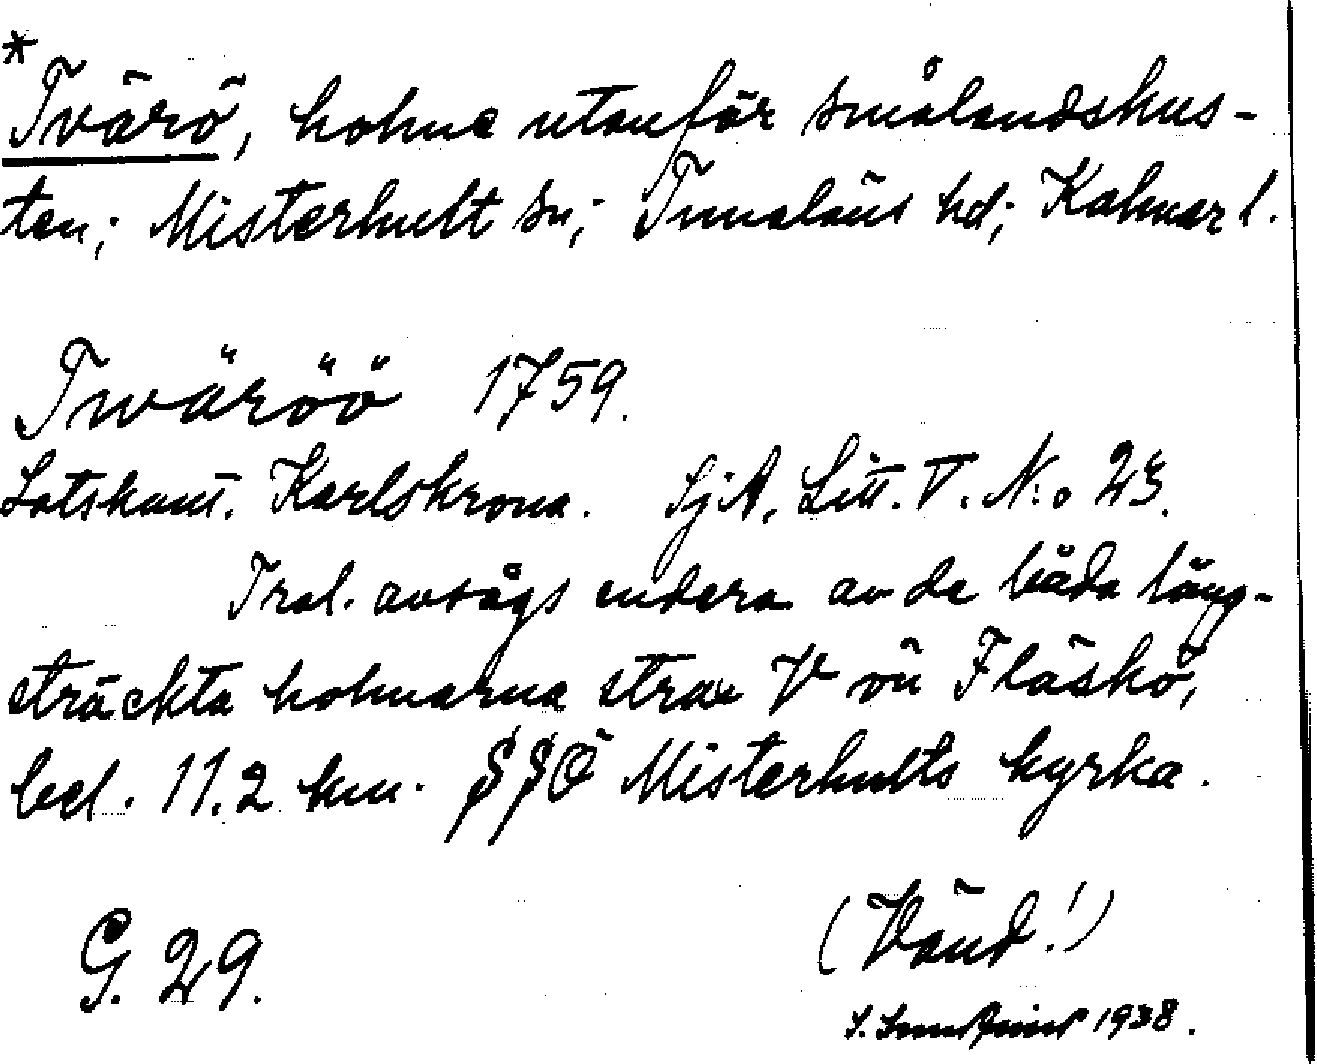 *
Tvärö, holme utanför smålandskus-
ten; Misterhult sn; Tunaläns hd; Kalmar l.
Twäröö 1759.
Lotskont. Karlskrona. SjA, Litt. V. N:o 23.
Trol. avsågs endera av de båda lång-
sträckta holmarna strax V om Fläskö,
bel. 11.2 km. SSÖ Misterhults kyrka.
G. 29.
(Vänd!)
1938.